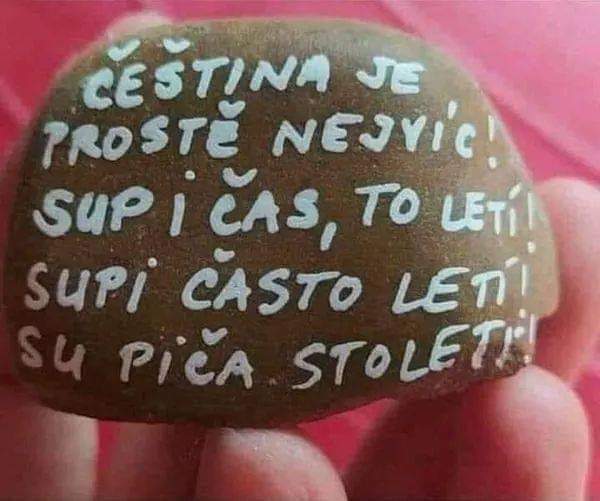 ČEŠTINA JE
PROSTĚ NEJVÍC!
SUP I ČAS, TO LETÍ!
SUPI ČASTO LETÍ!
SU PIČA STOLETÍ!